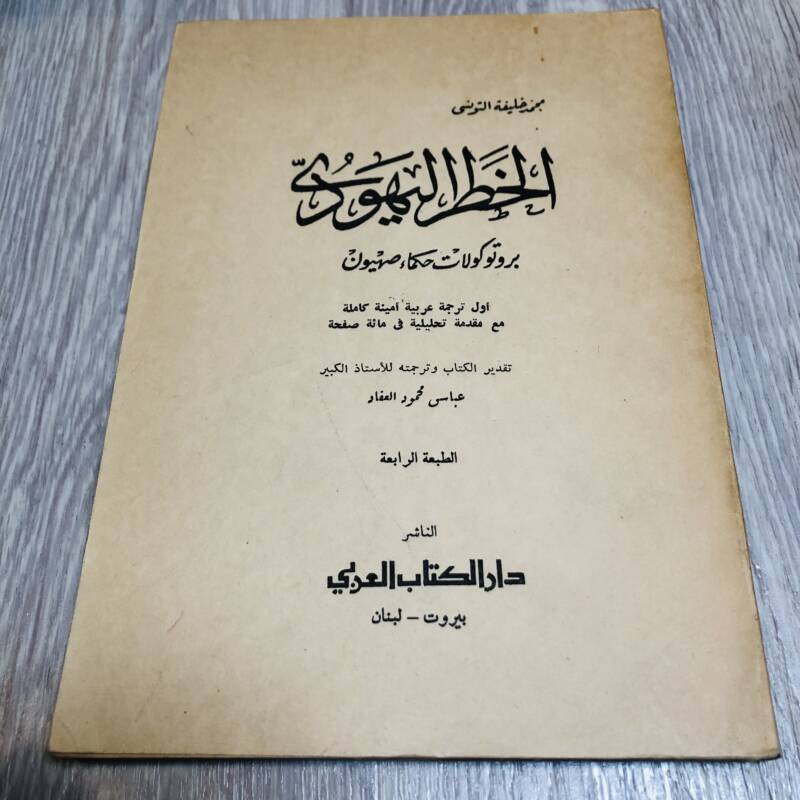 محمد خليفة التونسى
الخَطَر اليَهُودىّ
بروتوكولات حكماء صهيون
أول ترجمة عربية أمينة كاملة
مع مقدمة تحليلية فى مائة صفحة
تقدير الكتاب وترجمته للأستاذ الكبير
عباس محمود العقاد
الطبعة الرابعة
الناشر
دار الكتاب العربي
بيروت - لبنان